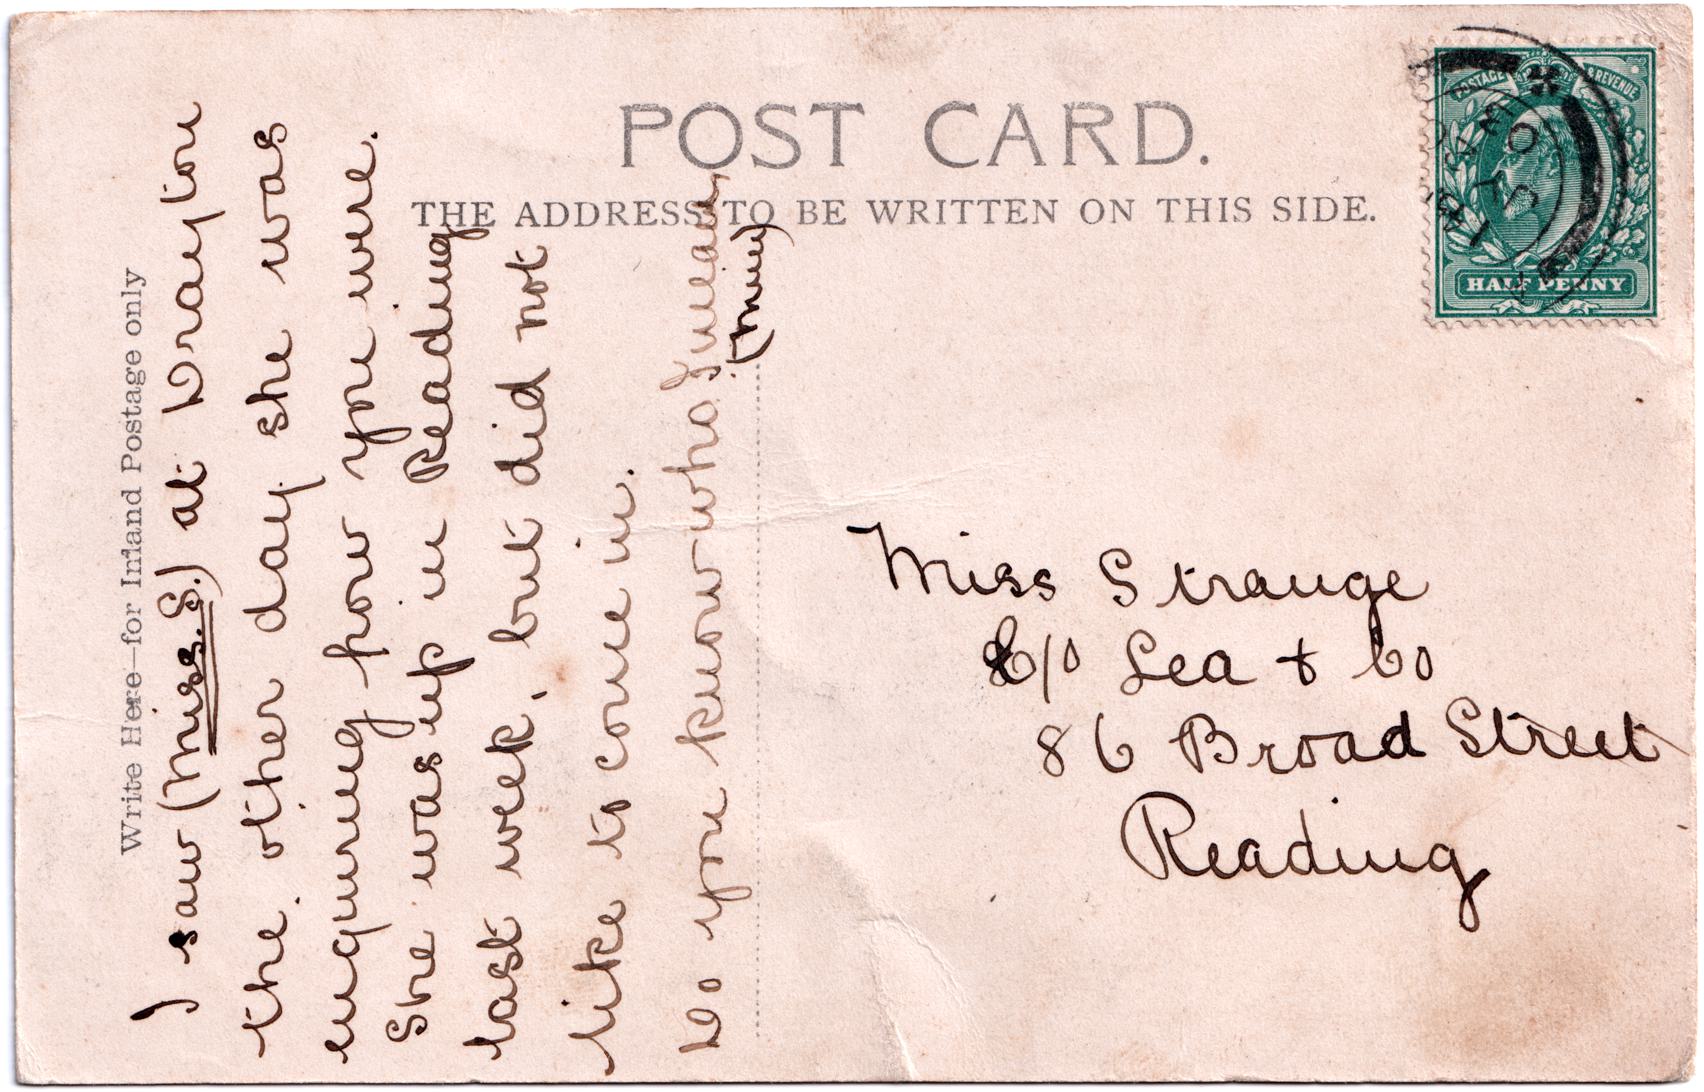 POST CARD.
THE ADDRESS TO BE WRITTEN ON THIS SIDE.
Write Here—for Inland Postage only
I saw (Miss. S.) at Drayton
the other day she was
enquiring how you were.
She was up in Reading
last week, but did not
like to come in.
Do you know who I mean,
Miss Strange
C/o Lea & Co
86 Broad Street
Reading
POSTAGE & REVENUE
HALF PENNY